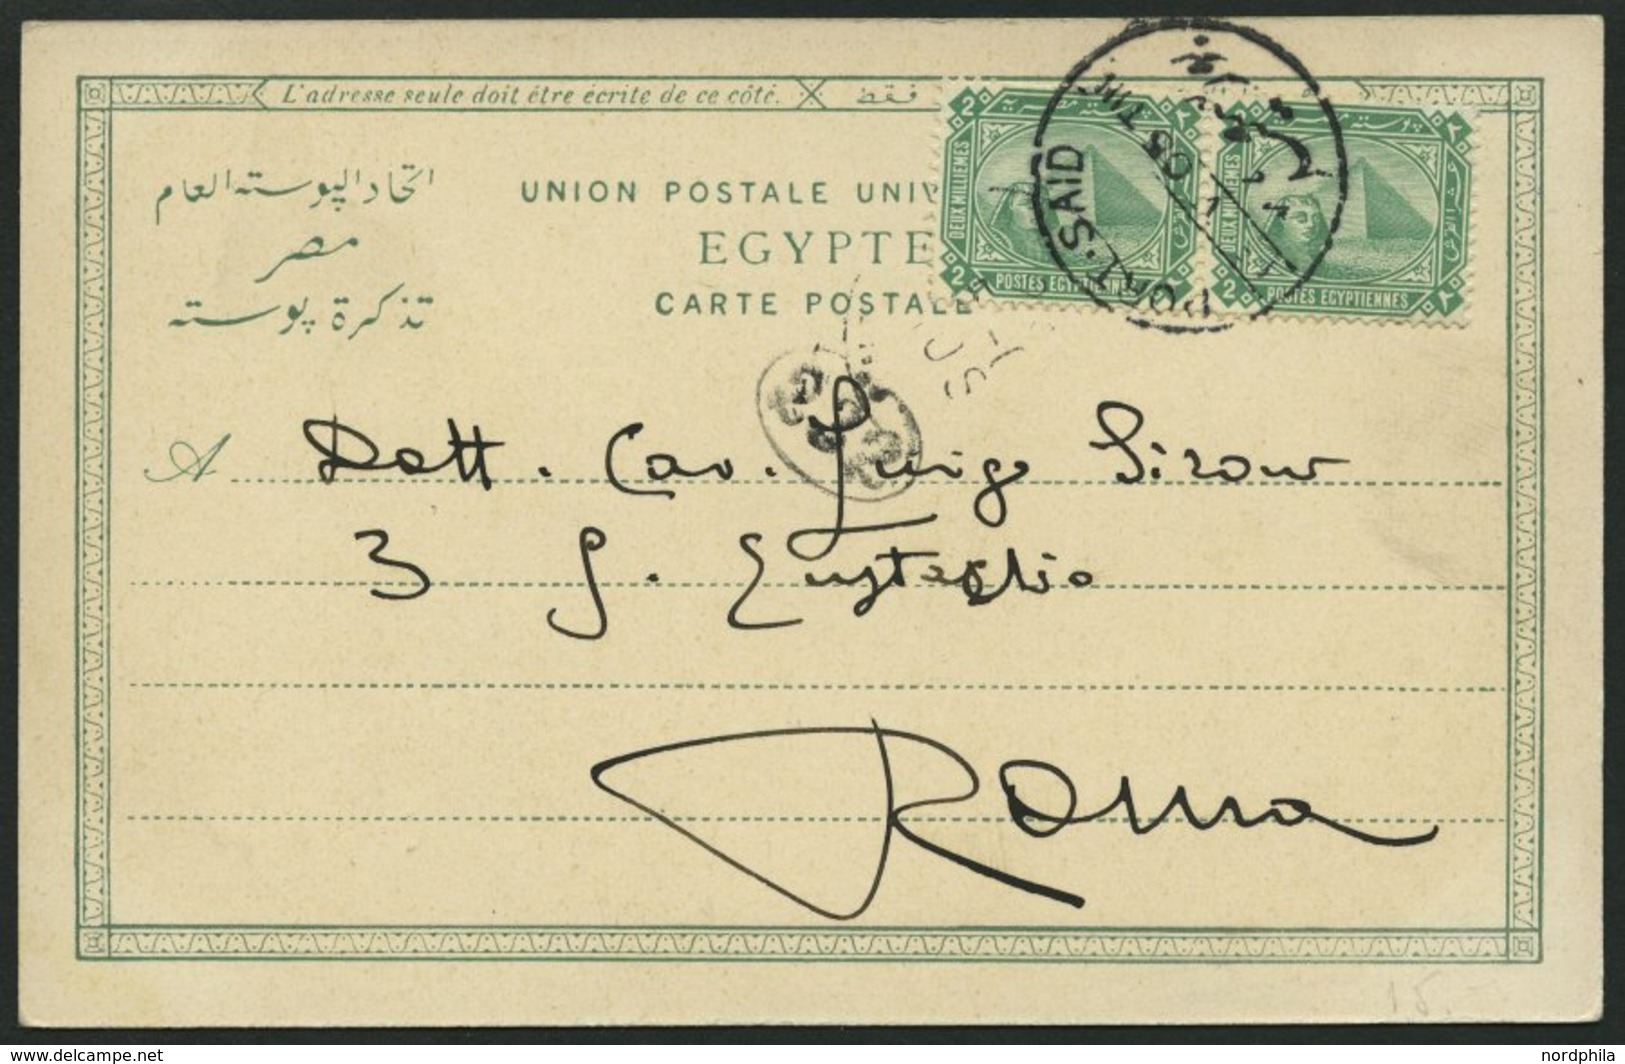 L'adresse seule doit être écrite de ce côté.
فقط
اتحاد البوسته العام
مصر
تذكرة بوسته
UNION POSTALE UNIV
EGYPTE
CARTE POSTALE
2
DEUX MILLIEMES
POSTES EGYPTIENNES
2
2
DEUX MILLIEMES
POSTES EGYPTIENNES
2
PORT-SAID
05
A Dott. Cav. Luigi
3 S. Eustachio
Roma
15.-
nordphila